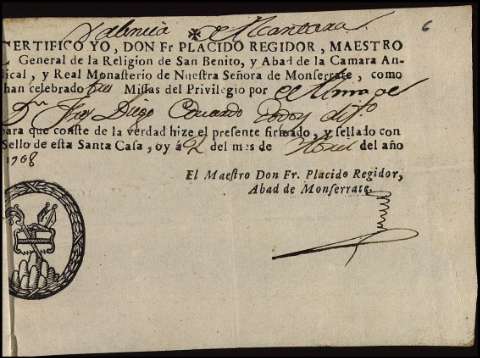 Valencia ✠ Alcantara 6
CERTIFICO YO, DON Fr PLACIDO REGIDOR, MAESTRO
General de la Religion de San Benito, y Abad de la Camara An-
lical, y Real Monasterio de Nuestra Señora de Monserrate, como
han celebrado Missas del Privilegio por el Alma de
Dn Fray Diego
para que conste de la verdad hize el presente firmado, y sellado con
Sello de esta Santa Casa, oy á 2 del mes de Abril del año
1708
El Maestro Don Fr. Placido Regidor,
Abad de Monserrate.